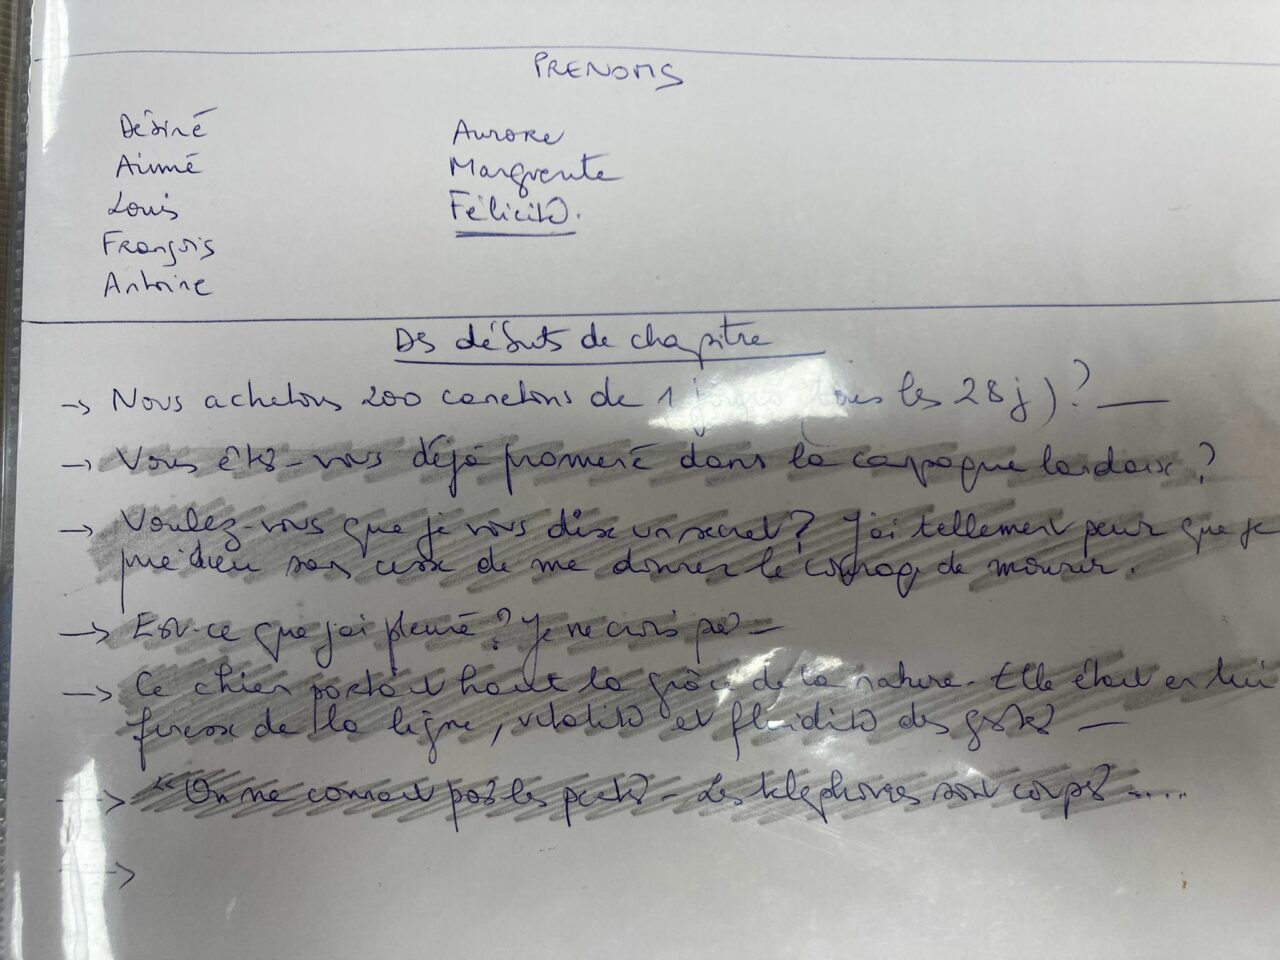 PRENOMS
Désiré Aurore
Aimé Marguerite
Louis Félicité.
François
Antoine
Des débuts de chapitre
→ Nous achetons 200 canetons de 1 les 28 j)? —
→ Vous êtes-vous déjà promené dans la campagne landaise?
→ Voulez-vous que je vous dise un secret? J'ai tellement peur que je
prie dieu sans cesse de me donner le courage de mourir.
→ Est-ce que j'ai pleuré? Je ne crois pas —
→ Ce chien portait haut la grâce de la nature. Elle était en lui
finesse de la ligne, vitalité et fluidité des gestes —
→ "On ne connait pas les Les téléphones sont coupés .....
→